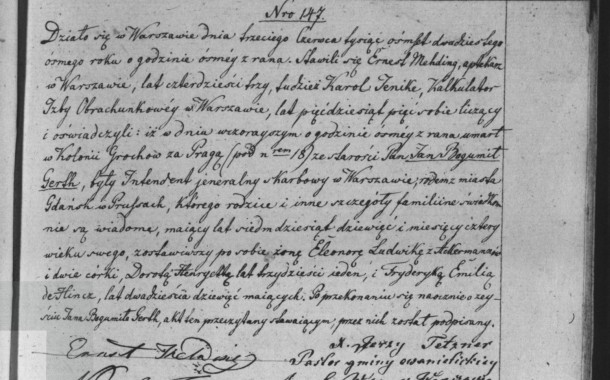 Nro 147.
Działo się w Warszawie dnia trzeciego Czerwca tysiąc ośmset dwudziestego
osmego roku o godzinie ósméy z rana. Stawili się Ernest Mehding, aptekarz
w Warszawie, lat czterdzieści trzy, tudzież Karol Jenike, Kalkulator
Izby Obrachunkowéy w Warszawie, lat pięćdziesiąt pięć sobie liczący
i oświadczyli: iż w dniu wczorayszym o godzinie ósméy z rana, umarł
w Kolonii Grochów za Pragą (pod nrem 18) ze starości Pan Jan Bogumił
Gerth, były Intendent jeneralny skarbowy w Warszawie, rodem z miasta
Gdańsk w Prussach, którego rodzice i inne szczegóły familiine świadkom
nie są wiadome, maiący lat siedmdziesiąt dziewięć i miesięcy cztery
wieku swego, zostawiwszy po sobie żonę Eleonorę Ludwikę z Ackermanów
i dwie córki, Dorotę Henryettę lat trzydzieści ieden, i Fryderykę Emilią
de Hincz, lat dwadzieścia dziewięć maiących. Po przekonaniu się naocznie o zey-
ściu Jana Bogumiła Gerth, akt ten przeczytany stawaiącym, przez nich został podpisany.
X. Jerzy Tetzner
Ernst Mehding
Pastor gminy ewanielickiey